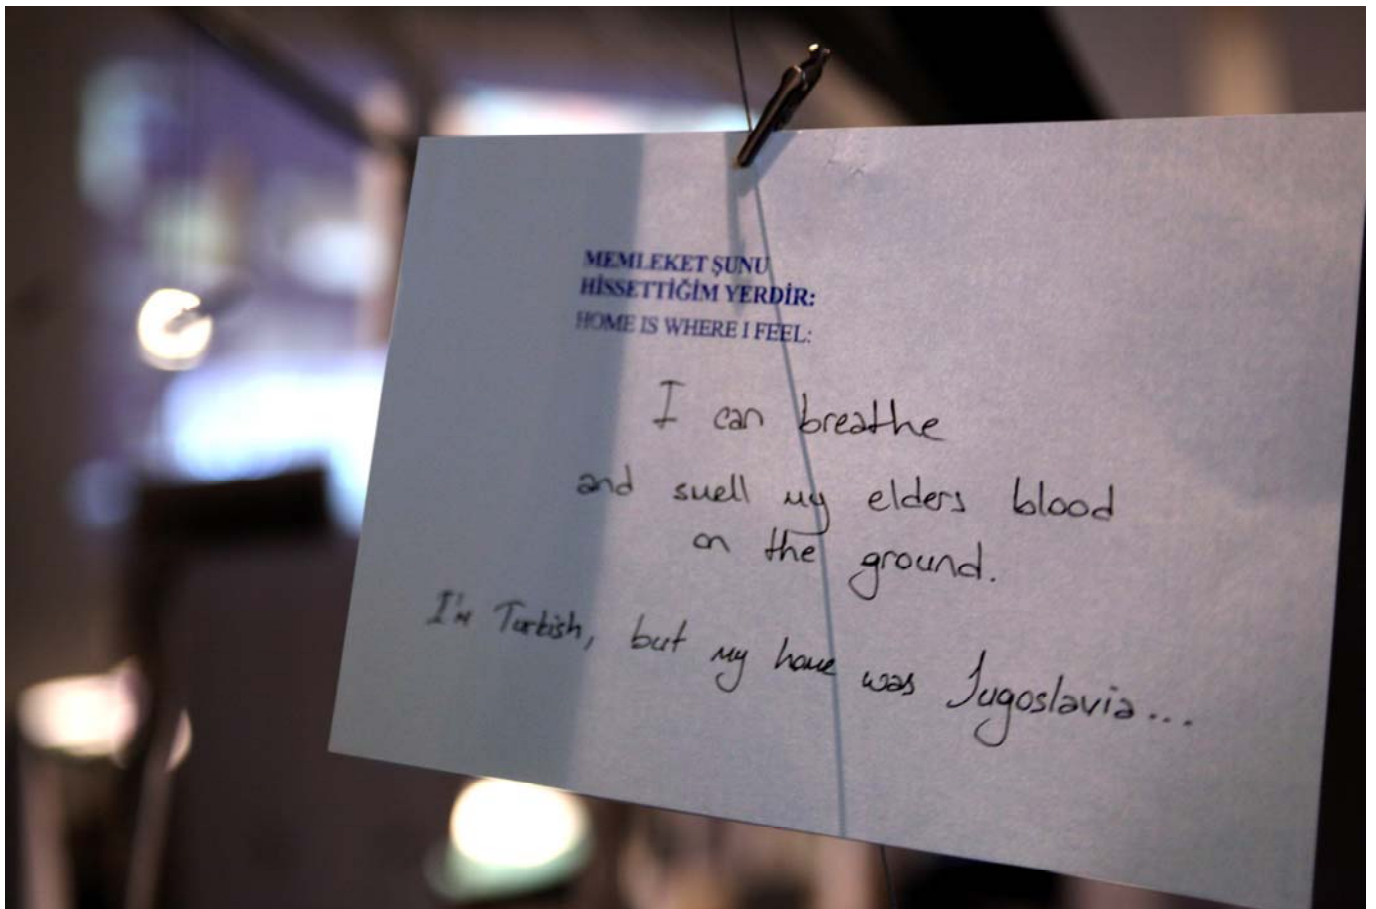 MEMLEKET ŞUNU
HİSSETTİĞİM YERDİR:
HOME IS WHERE I FEEL:
I can breathe
and smell my elders blood
on the ground.
I'm Turkish, but my home was Jugoslavia...